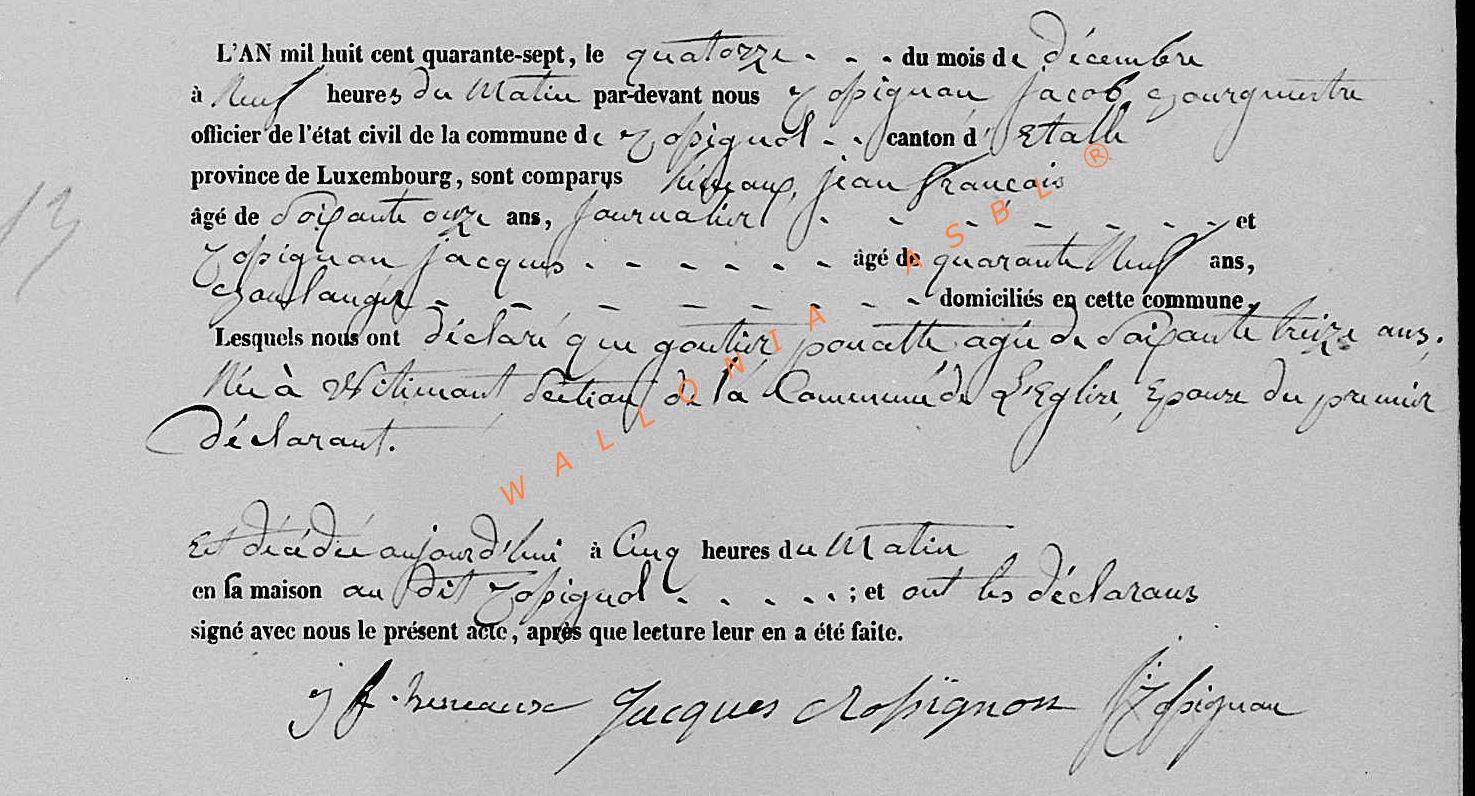 L'AN mil huit cent quarante-sept, le quatorze - - - du mois de décembre
à Neuf heures du Matin par-devant nous Rossignon Jacob, Bourguestre
officier de l'état civil de la commune de Rossignol - - canton d'Etalle
province de Luxembourg, sont comparus jean françois
13
âgé de Soixante onze ans, journalier - - - - - - - et
Rossignon jacques - - - - - - âgé de quarante Neuf ans,
Boulanger - - - - - - - - domiciliés en cette commune,
Lesquels nous ont déclaré que goutier agée de Soixante treize ans.
Née à Witimont Section de la Commune de L'Eglise, Epouse du premier
déclarant.
Est décédée aujourd'hui à Cinq heures du Matin
en sa maison au dit Rossignol - - - - - ; et ont les déclarans
signé avec nous le présent acte, après que lecture leur en a été faite.
j f Jacques Rossignon J Rossignon
WALLONIA ASBL ®